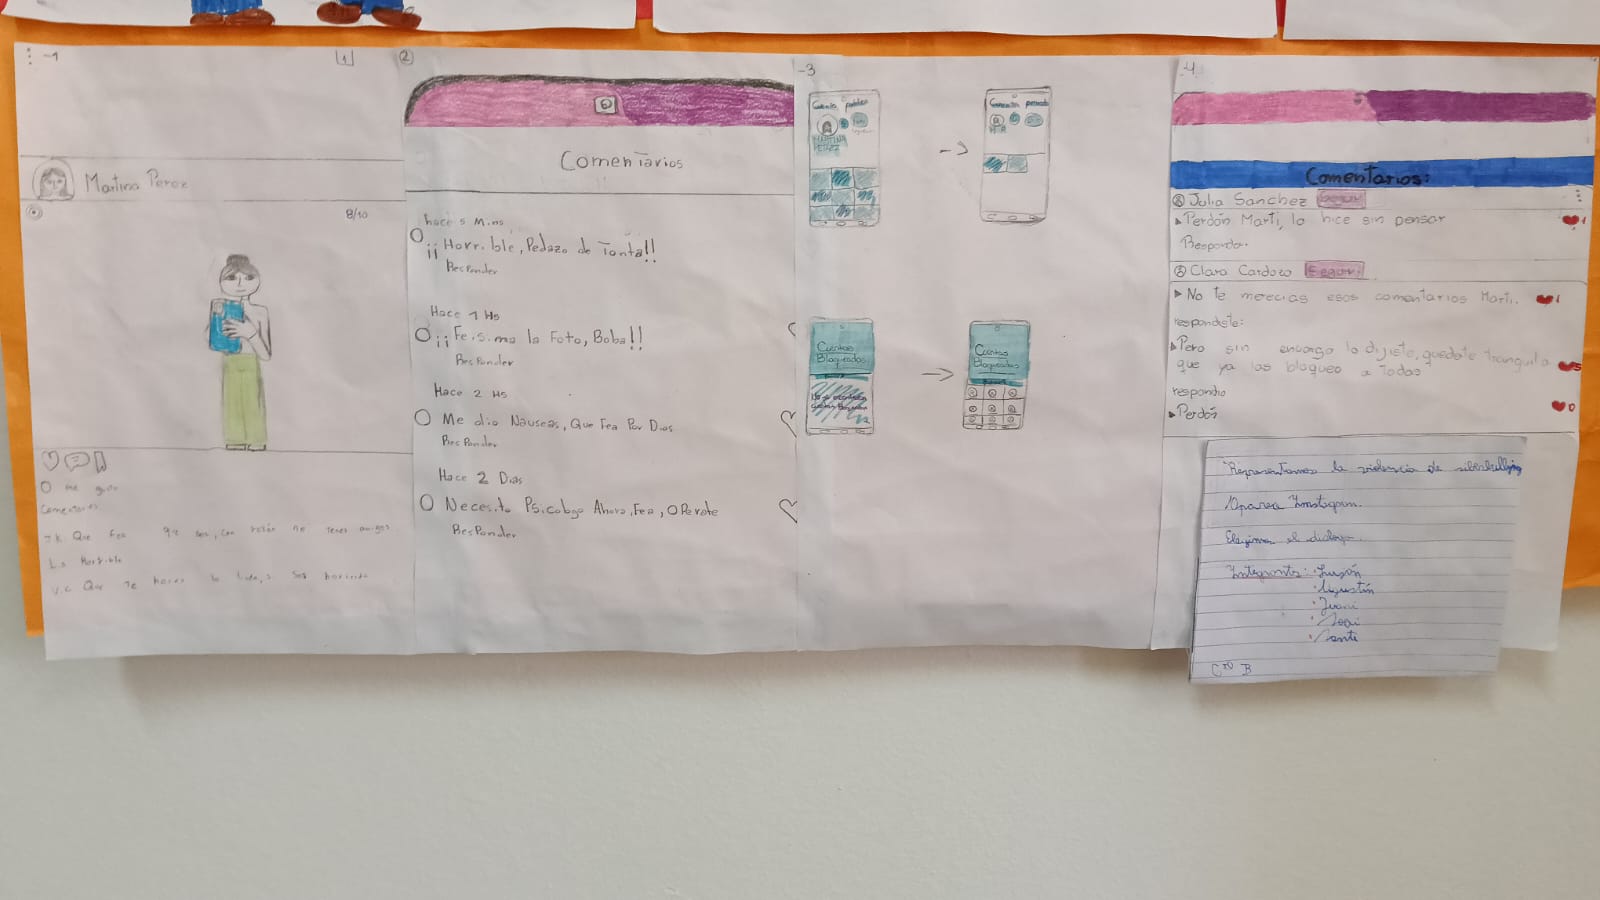 -1
1
Martina Perez
8/10
0 me gusta
Comentarios
J.K. Que Fea que sos, con razón no tenes amigos
L.s Horrible
V.C Que te haces la linda, si sos horrible
2
Comentarios
hace 5 Mins
¡¡Horrible, Pedazo de Tonta!!
Responder
Hace 1 Hs
¡¡Feisima la Foto, Boba!!
Responder
Hace 2 Hs
Me dio Nauseas, Que Fea Por Dios
Responder
Hace 2 Dias
Necesito Psicologo Ahora, Fea, Operate
Responder
-3
Cuenta publica
MARTINA
PEREZ
->
Cuenta privada
Cuentas
Bloqueadas
->
Cuentas
Bloqueadas
-4
Comentarios:
Julia Sanchez Seguir
Perdón Marti, lo hice sin pensar
1
Responder
Clara Cardozo Seguir
No te merecias esos comentarios Marti.
1
respondiste:
Pero sin encargo lo dijiste, quedate tranquila
que ya las bloqueo a Todas
5
respondio
Perdón
0
Representamos la violencia de siberbulling
Aparea Instagram.
Elegimos el dialogo.
Integrantes:
Agustín
Juani
Joaqui
Santi
B